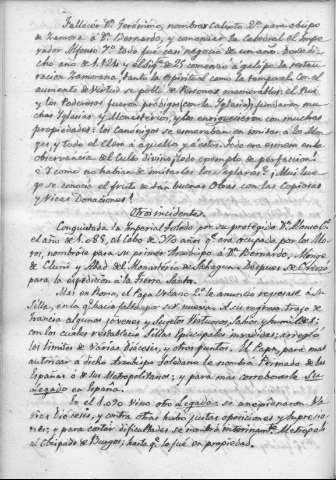 Fallecio Dn Gerónimo, nombrose Calixto 2º para obispo
de Zamora á Dn Bernardo, y comenzar la Catedral el Empe
rador Alfonso 7º todo fué casi negocio de un año. Desde di
cho año de 1.124 y el sigte 25 comenzó á galope la restau
racion Zamorana, tanto la espiritual como la temporal: con el
aumento de virtud se pobló de Personas memorables: el Rei
y los Poderosos fueron pródigos con la Iglesia; fundaron mu
chas Iglesias y Monasterios, y los enriquecieron con muchas
propiedades: los canónigos se esmeraban en imitar á los Mon
ges, y todo el Clero á aquellos y á estos. Todo era esmero en la
observancia del culto divino, todo exemplo de perfeccion!
¿Y como no habian de imitarlos los seglares? ¡Mui luego
se conoció el fruto de tan buenas obras con las copiosas
y ricas Donaciones!
Otros incidentes.
Conquistada la Imperial Toledo por su protegido Dn Alonso 6º
el año de 1.085, al cabo de 370 años qe era ocupada por los Mo
ros, nombróle para su primer Arzobispo á Dn Bernardo, Monge
de Cluni y Abad del Monasterio de Sahagun. Despues se cruzó
para la expedicion á la Tierra Santa.
Mas en Roma, el Papa Urbano 2º le anunció regresase á su
Silla, en la qe hacia falta por ser nueva. A su regreso trajo de
Francia algunos jóvenes y sugetos virtuosos, sabios y
con los cuales restableció Sillas Episcopales invadidas; arregló
los limites de varias diócesis, y otros puntos. El Papa, para mas
autorizar á dicho Arzobispo Toledano le nombró Primado de las
Españas ó de sus Metropolitanos; y para mas corroborarle Su
Legado en España.
En el 1.090 vino otro Legado: se arreglaron va
rias diócesis, y contra otras hubo justas oposiciones y
nes; y para cortar dificultades se nombró interinamte Metropoli
al Obispado de Burgos; hasta qe lo fué en propiedad.